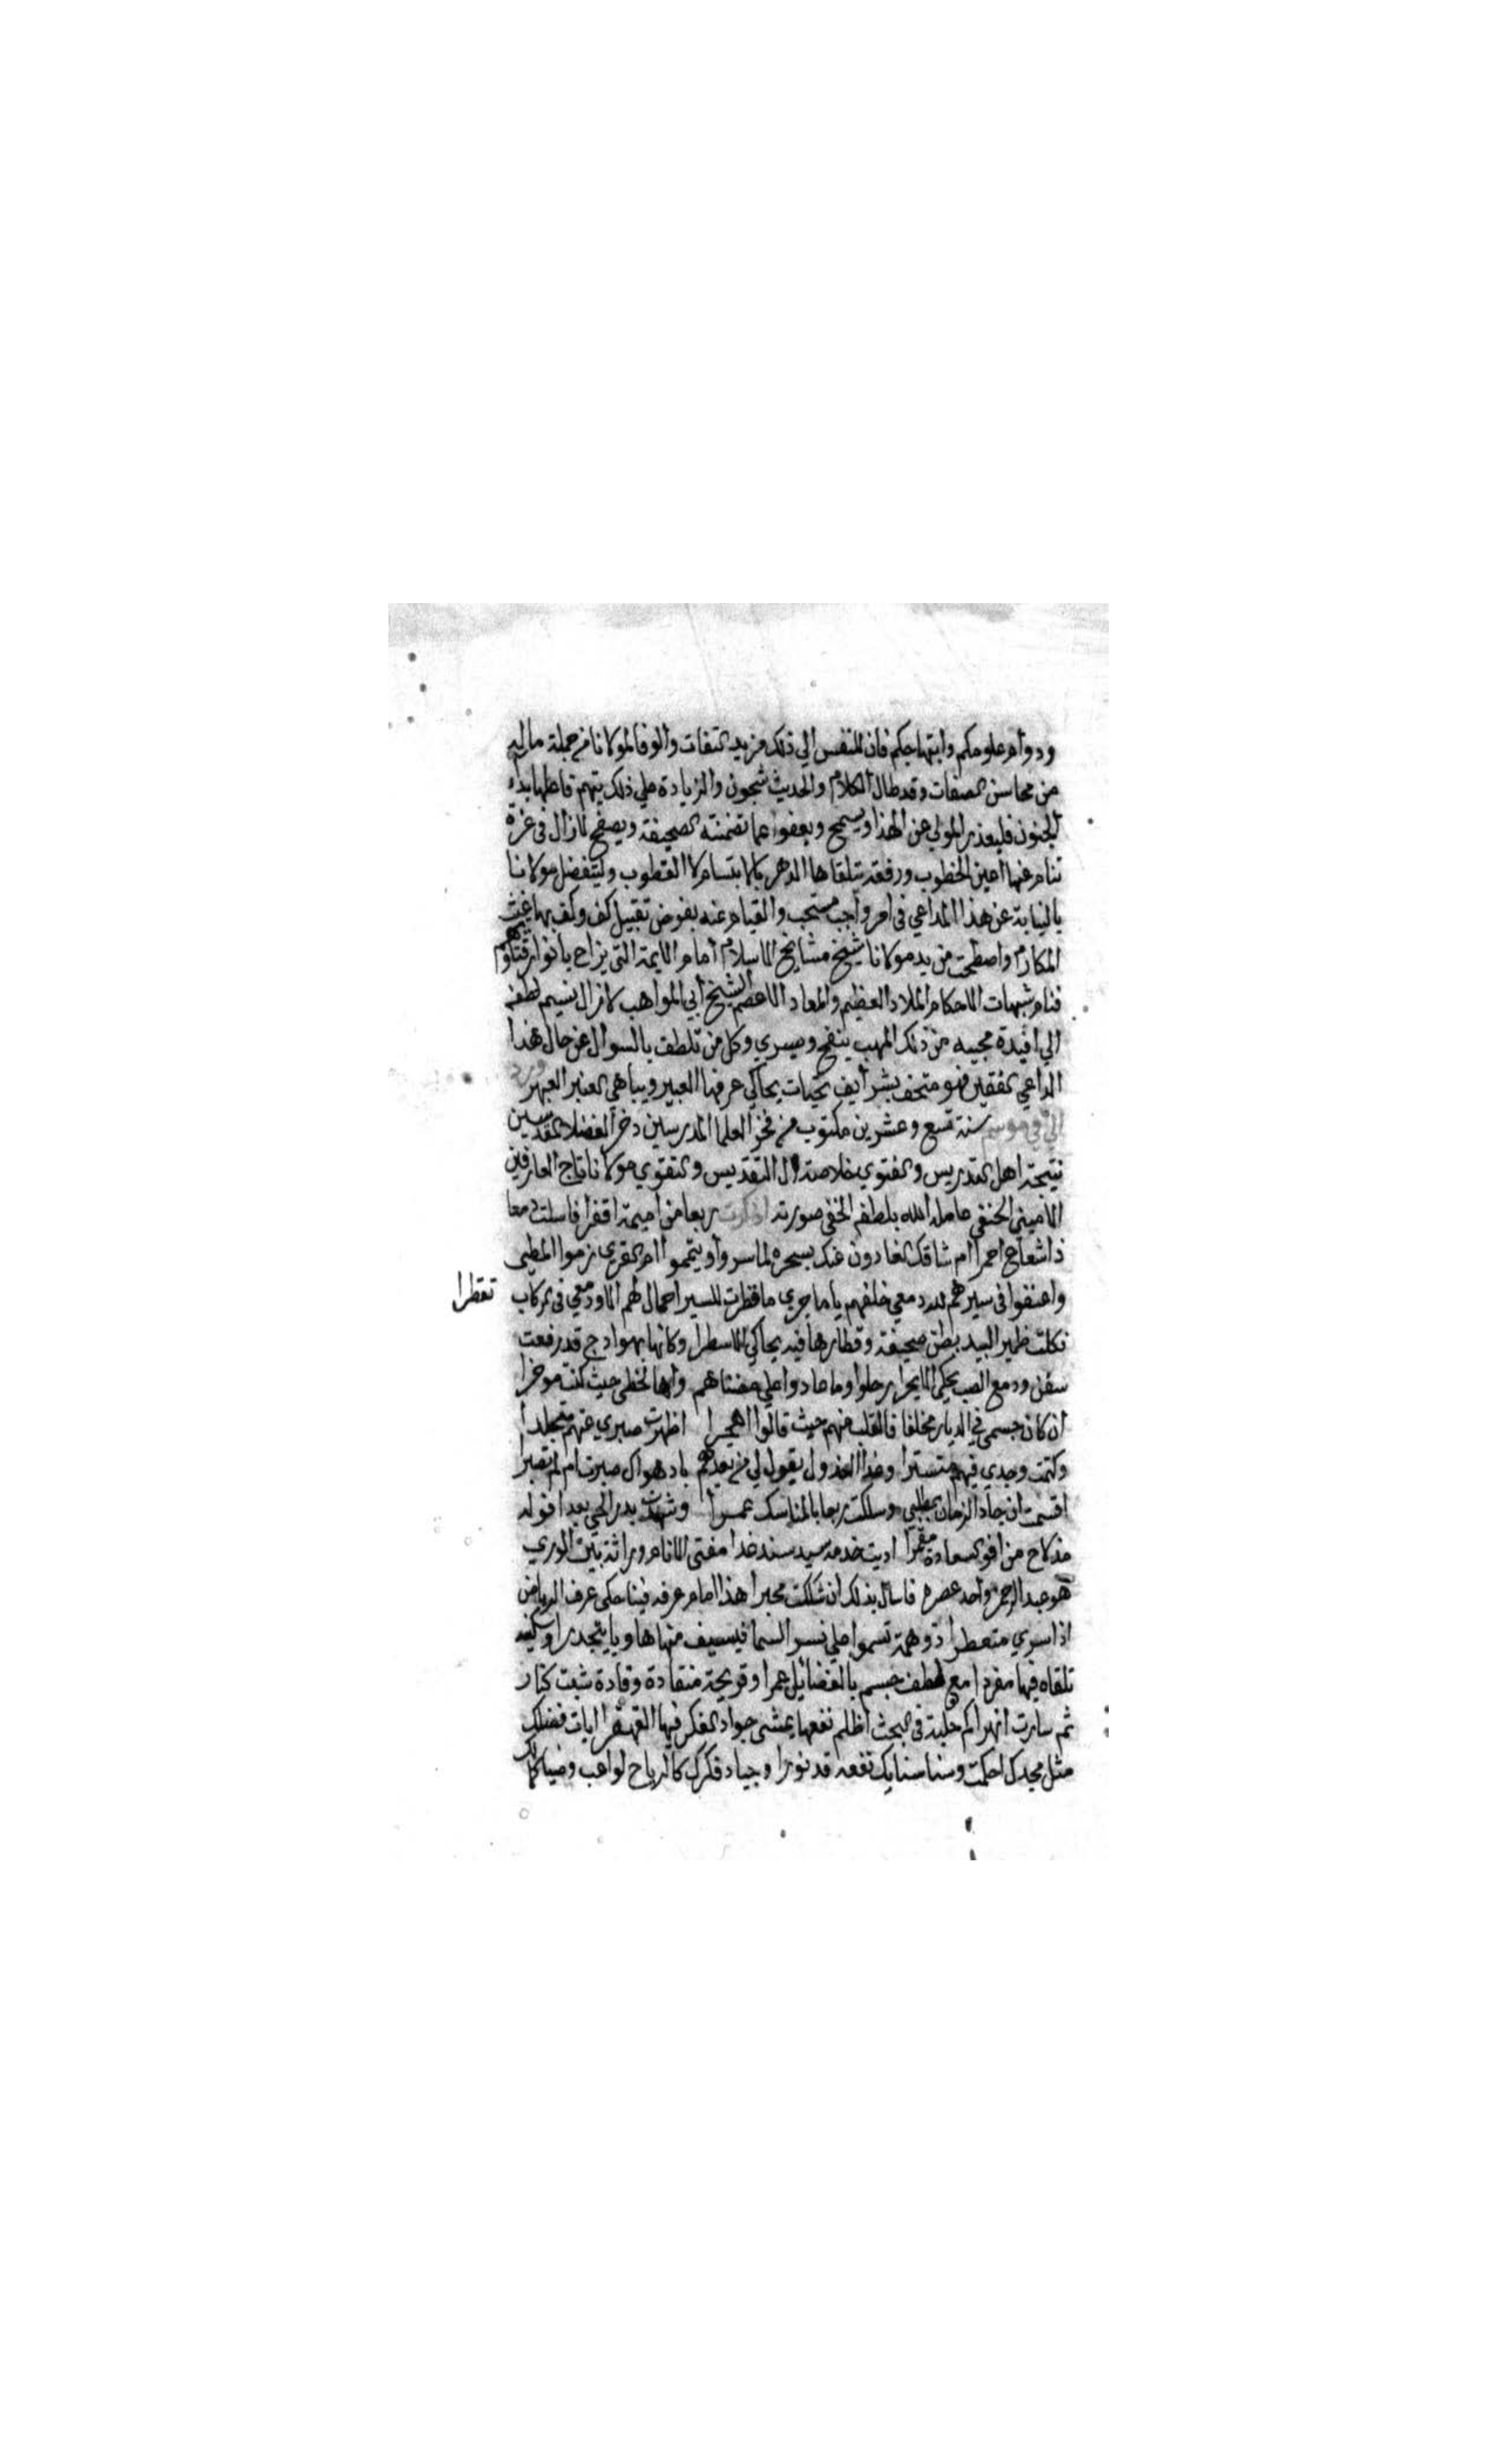 ودوام علومكم وابتهاجكم فان للنفس الي ذلك مزيد التفات والوفا لمولانا من جملة ماله
من محاسن الصفات وقد طال الكلام والحديث شجون والزيادة علي ذلك يتهم فاعلها بداء
الجنون فليعذر المولي عن الهذا ويسمح ويعفوا عما تضمنته الصحيفة ويصفح لازال في عزة
تنام عنها اعين الخطوب ورفعة تتلقاها الدهر بالابتسام لا القطوب وليتفضل مولانا
بالنيابة عن هذا الداعي في امر واجب مستحب والقيام عنه بفرض تقبيل كف وكف بها غيث
المكارم من يد مولانا شيخ مشايخ الاسلام امام الايمة التي يزاع بانوار فتاويهم
قتام شبهات الاحكام الملاذ العظيم والمعاذ الاعصم الشيخ ابي المواهب لازال نسيم لطفه
الي افيدة محبيه من ذلك المهب ينفح ويسري وكل من تلطف بالسوال عن حال هذا
الداعي الفقير فهو متحف بشرايف تحيات يحاكي عرفها العبير ويباهي العنبر العبهر وورد
الي في موسم سنة تسع وعشرين مكتوب من فخر العلما المدرسين ذخر الفضلا المقدسين
نتيجة اهل التدريس والفتوي خلاصة ال التقديس والتقوي مولانا تاج العارفين
الاميني الحنفي عامله الله بلطفه الخفي صورته اذكرت ربعا من اميمة اقفرا فاسلت دمعا
ذا شعاع احمرا ام شاقك الغادون عنك بسحرة لما سروا ويتمموا ام القري زموا المطي
واعنقوا في سيرهم لله دمعي خلفهم يا ما جري ما قطرت للسير اجمال لهم الا ودمعي في الركاب تقطرا
فكلت ظهر البيد بطن صحيفة وقطارها فيه يحاكي الاسطرا وكانها بهوادج قد رفعت
سفن ودمع الصب يحكي الابحرا رحلوا وما عادوا علي مضناهم واها لحظي حيث كنت موخرا
ان كان جسمي في الديار مخلفا فالقلب منهم حيث قالوا اهجرا اظهرت صبري عنهم متجلدا
وكتمت وجدي فيهم متسترا وغدا العذول يقول لي من بعدهم باد هواك صبرت ام لم تصبرا
اقسمت ان جاد الزمان بمطلبي وسلكت ربعا بالمناسك عمرا وشهدت بدر الحي بعد افوله
مذ لاح من افق السعادة مقمرا اديت خدمة سيد سند غدا مفتي الانام وراثة بين الوري
هو عبد الرحمن واحد عصره فاسال بذلك ان شككت مخبرا هذا امام عرفه فينا حكي عرف الرياض
اذا سري متعطرا ذو همة تسموا علي نسر السما
تلقاه فيها مفردا مع لطف جسم بالفضائل عمرا وقريحة منقادة وقادة شبت كنار
ثم سارت انهرا كم حلبة في البحث اظلم نقعها يمشي جواد الفكر فيها القهقرا ايات فضلك
مثل مجدك احكمت وسنا سنابك نقعه قد نورا وجياد فكرك كالرياح لواعب